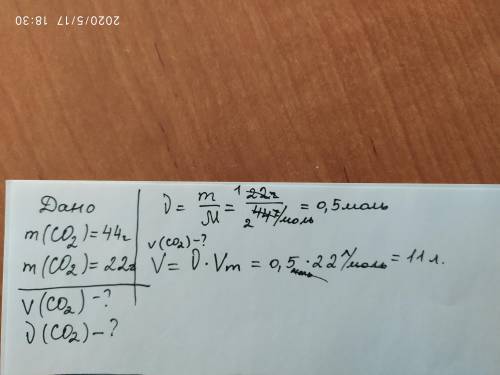 2020/5/17 18:30
Дано
m(CO₂)=44г
m(CO₂)=22г
V(CO₂)-?
ϑ(CO₂)-?
ϑ = m/M = 1 22г / 2 44г/моль = 0,5 моль
V(CO₂)-?
V = ϑ·Vm = 0,5 моль · 22 л/моль = 11 л.